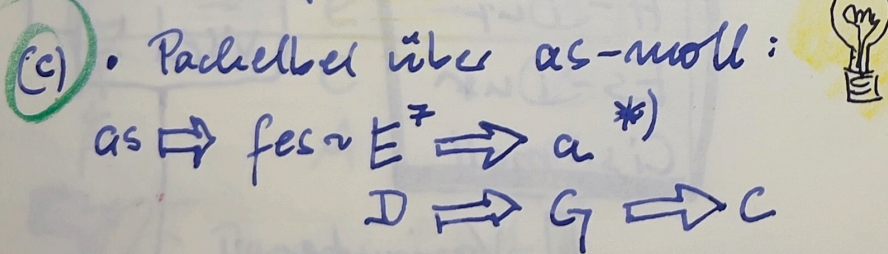 (c) • Pachelbel über as-moll:
as ⇨ fes ~ E⁷ ⇨ a *)
D ⇨ G ⇨ C